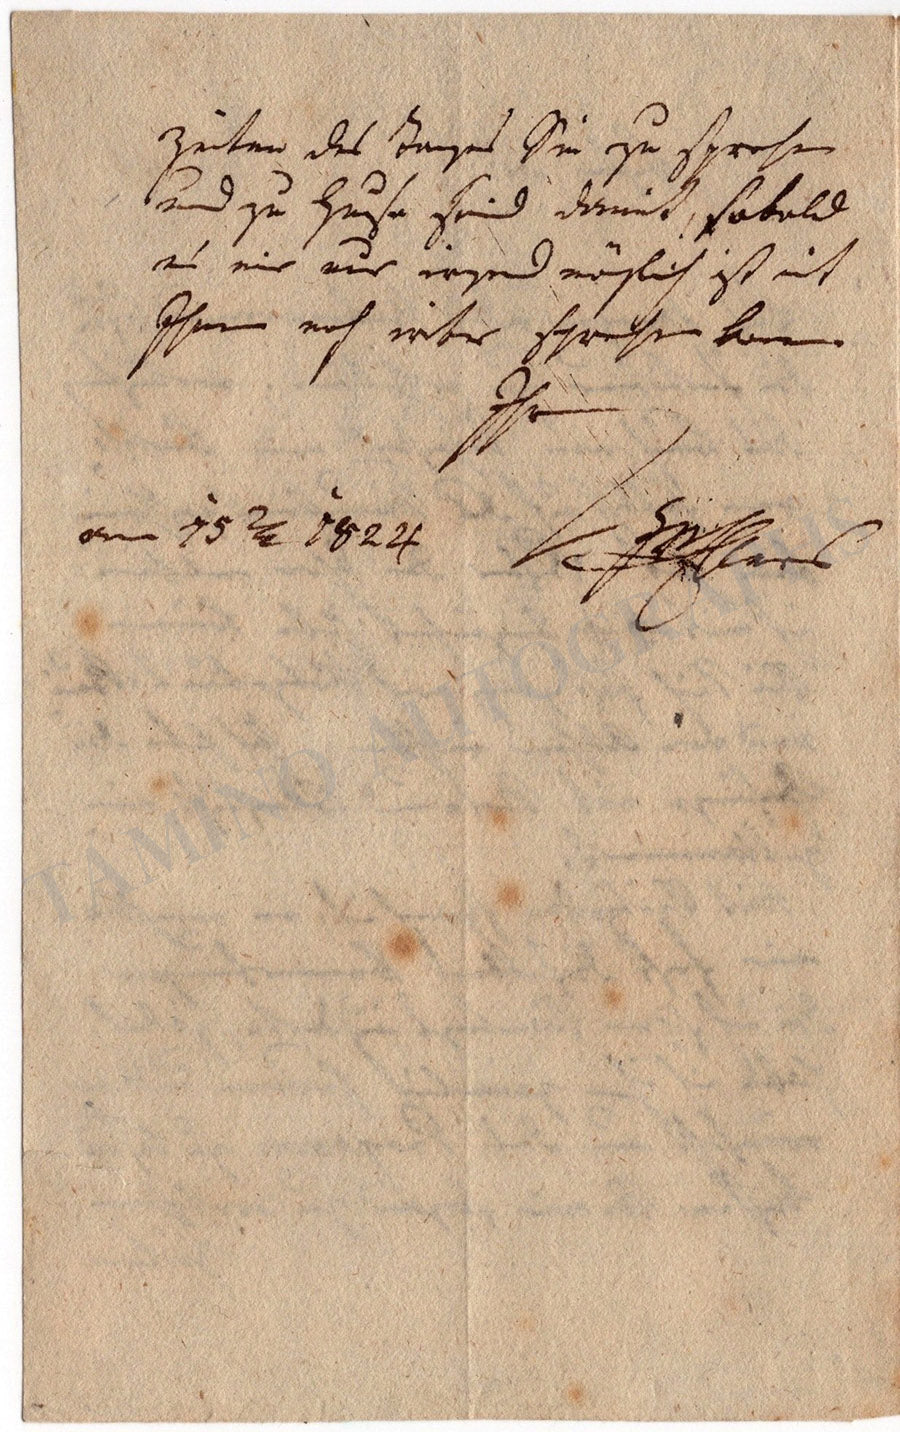 Zeiten des Tages Sie zu sprechen
und zu Hause sind damit, sobald
es mir nur irgend möglich ist mit
Ihnen noch sprechen kann.
Ihr
am 15 1824
TAMINO AUTOGRAPHS